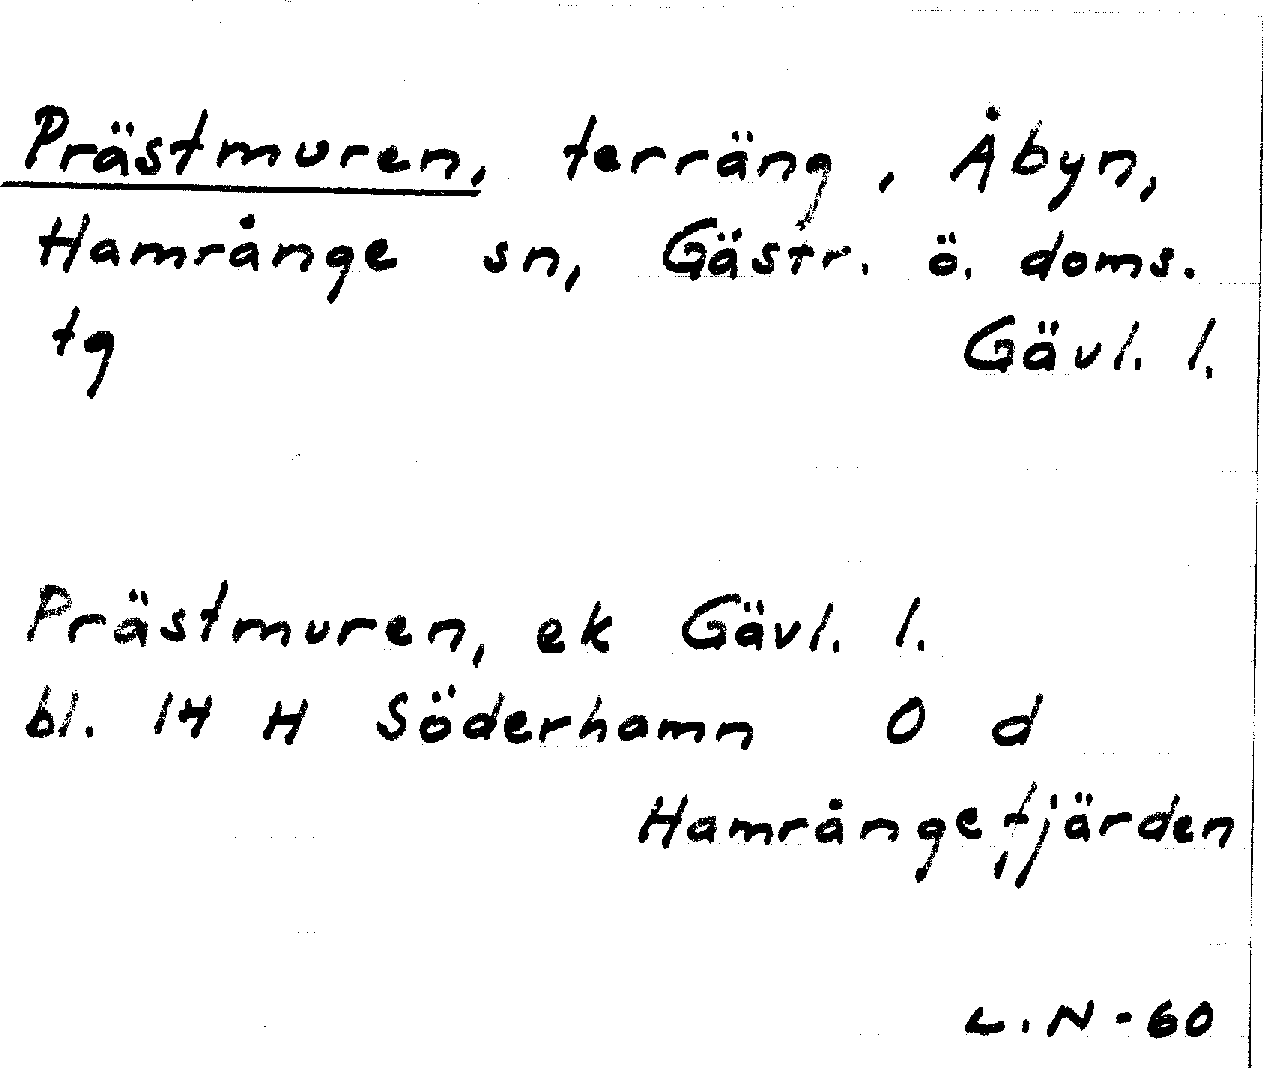 Prästmuren, terräng, Åbyn,
Hamrånge sn, Gästr. ö. doms.
tg Gävl. l.
Prästmuren, ek Gävl. l.
bl. 14 H Söderhamn 0 d
Hamrångefjärden
L.N-60